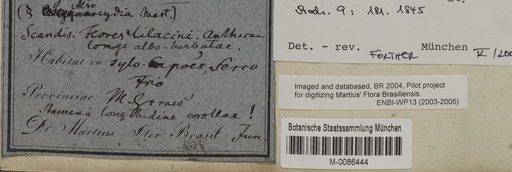 Mart.)
Scandis. Flores lilacini. Antherae
longe albo-barbatae.
Habitat in sylv. Capoes, Serro
Frio
Provinciae M. Geraes
longitudine corollae!
Dr. Martius Iter Brasil Jun
Rods. 9: 181. 1845
Det. - rev. FORTHER München
Imaged and databased, BR 2004, Pilot project
for digitizing Martius' Flora Brasiliensis.
ENBI-WP13 (2003-2005)
Botanische Staatssammlung München
M-0086444